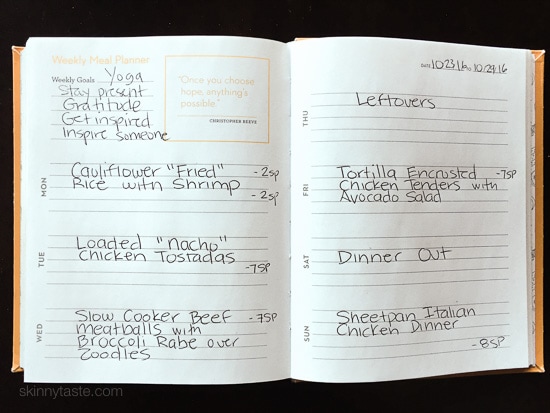 Weekly Meal Planner
Weekly Goals Yoga
Stay present
Gratitude
Get inspired
Inspire someone
"Once you choose
hope, anything's
possible."
CHRISTOPHER REEVE
MON
Cauliflower "Fried" - 2sp
Rice with Shrimp
- 2sp
TUE
Loaded "nacho"
Chicken Tostadas
-7SP
WED
Slow Cooker Beef -7SP
meatballs with
Broccoli Rabe over
Zoodles
skinnytaste.com
DATE 10 23 16 TO 10/29 16
THU
Leftovers
FRI
Tortilla Encrusted -7SP
Chicken Tenders with
Avocado Salad
SAT
Dinner Out
SUN
Sheetpan Italian
Chicken Dinner
-8SP